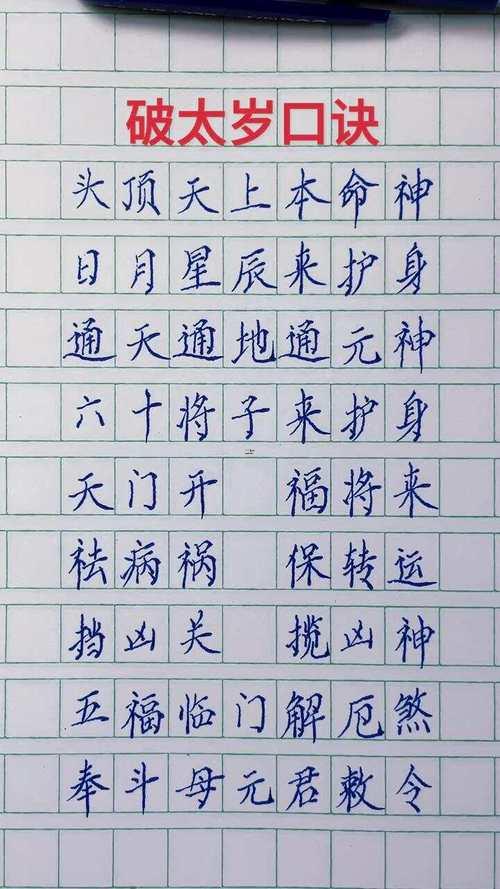 破太岁口诀
头顶天上本命神
日月星辰来护身
通天通地通元神
六十将子来护身
天门开 福将来
祛病祸 保转运
挡凶关 揽凶神
五福临门解厄煞
奉斗母元君敕令